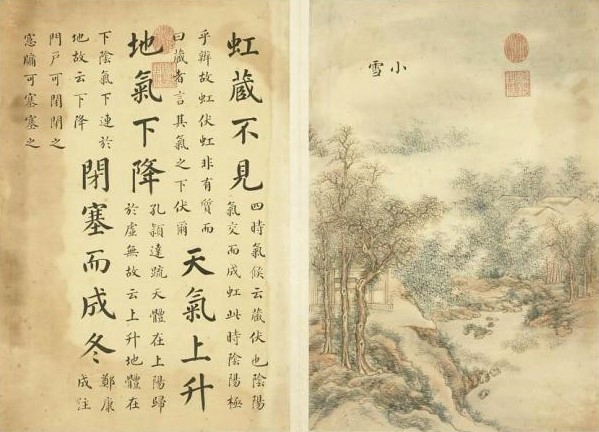 小雪
虹藏不見
四時氣候云藏伏也陰陽
氣交而成虹此時陰陽極
乎辨故虹伏虹非有質而
曰藏者言其氣之下伏爾
天氣上升
地氣下降
孔穎達疏天體在上陽歸
於虛無故云上升地體在
下陰氣下連於
地故云下降
閉塞而成冬
鄭康
成注
門戶可閉閉之
窓牖可塞塞之